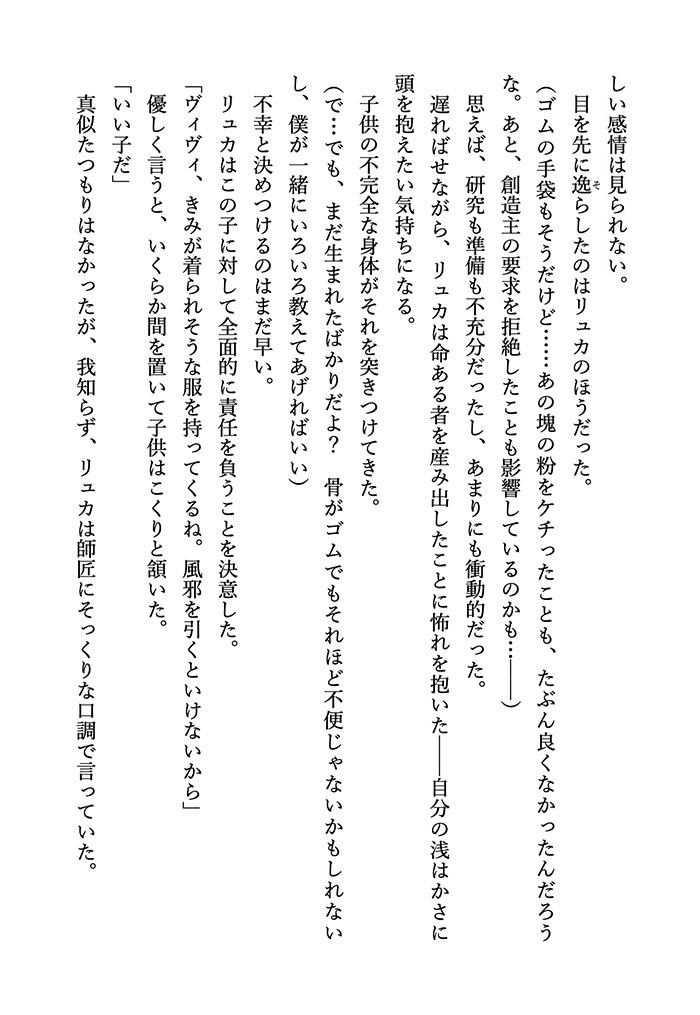 しい感情は見られない。
　目を先に逸らしたのはリュカのほうだった。
（ゴムの手袋もそうだけど……あの塊の粉をケチったことも、たぶん良くなかったんだろう
な。あと、創造主の要求を拒絶したことも影響しているのかも…――）
　思えば、研究も準備も不充分だったし、あまりにも衝動的だった。
　遅ればせながら、リュカは命ある者を産み出したことに怖れを抱いた――自分の浅はかさに
頭を抱えたい気持ちになる。
　子供の不完全な身体がそれを突きつけてきた。
（で…でも、まだ生まれたばかりだよ？　骨がゴムでもそれほど不便じゃないかもしれない
し、僕が一緒にいろいろ教えてあげればいい）
　不幸と決めつけるのはまだ早い。
　リュカはこの子に対して全面的に責任を負うことを決意した。
「ヴィヴィ、きみが着られそうな服を持ってくるね。風邪を引くといけないから」
　優しく言うと、いくらか間を置いて子供はこくりと頷いた。
「いい子だ」
　真似たつもりはなかったが、我知らず、リュカは師匠にそっくりな口調で言っていた。